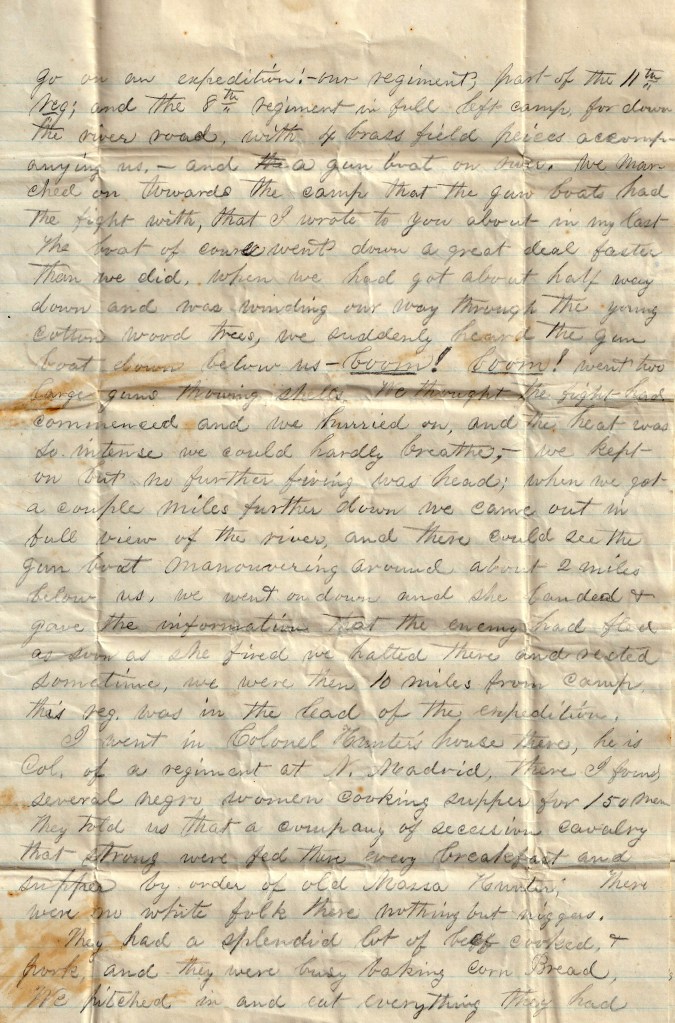 go on an expedition:- our regiment, part of the 11th
Reg; and the 8th regiment in full left camp, for down
the river road, with 4 brass field peices accomp-
anying us, - and a gun boat on river. We mar-
ched on towards the camp that the gun boats had
the fight with, that I wrote to you about in my last
The boat of course went down a great deal faster
than we did, when we had got about half way
down and was winding our way through the young
cotton wood trees, we suddenly heard the gun
boat down below us - boom! boom! went two
large guns throwing shells. We thought the fight had
commenced and we hurried on, and the heat was
so intense we could hardly breathe, - we kept
on but no further firing was head; when we got
a couple miles further down we came out in
full view of the river, and there could see the
gun boat manouvering around about 2 miles
below us, we went on down and she landed &
gave the information that the enemy had fled
as soon as she fired we halted there and rested
sometime, we were then 10 miles from camp,
this reg. was in the lead of the expedition.
I went in Colonel Hunter's house there, he is
Col. of a regiment at N. Madrid, there I found
several negro women cooking supper for 150 men
They told us that a company of secession cavalry
that strong were fed there every breakfast and
supper by order of old Massa Hunter; There
were no white folk there nothing but niggers.
They had a splendid lot of beef cooked, &
pork, and they were busy baking corn Bread,
We pitched in and eat everything they had